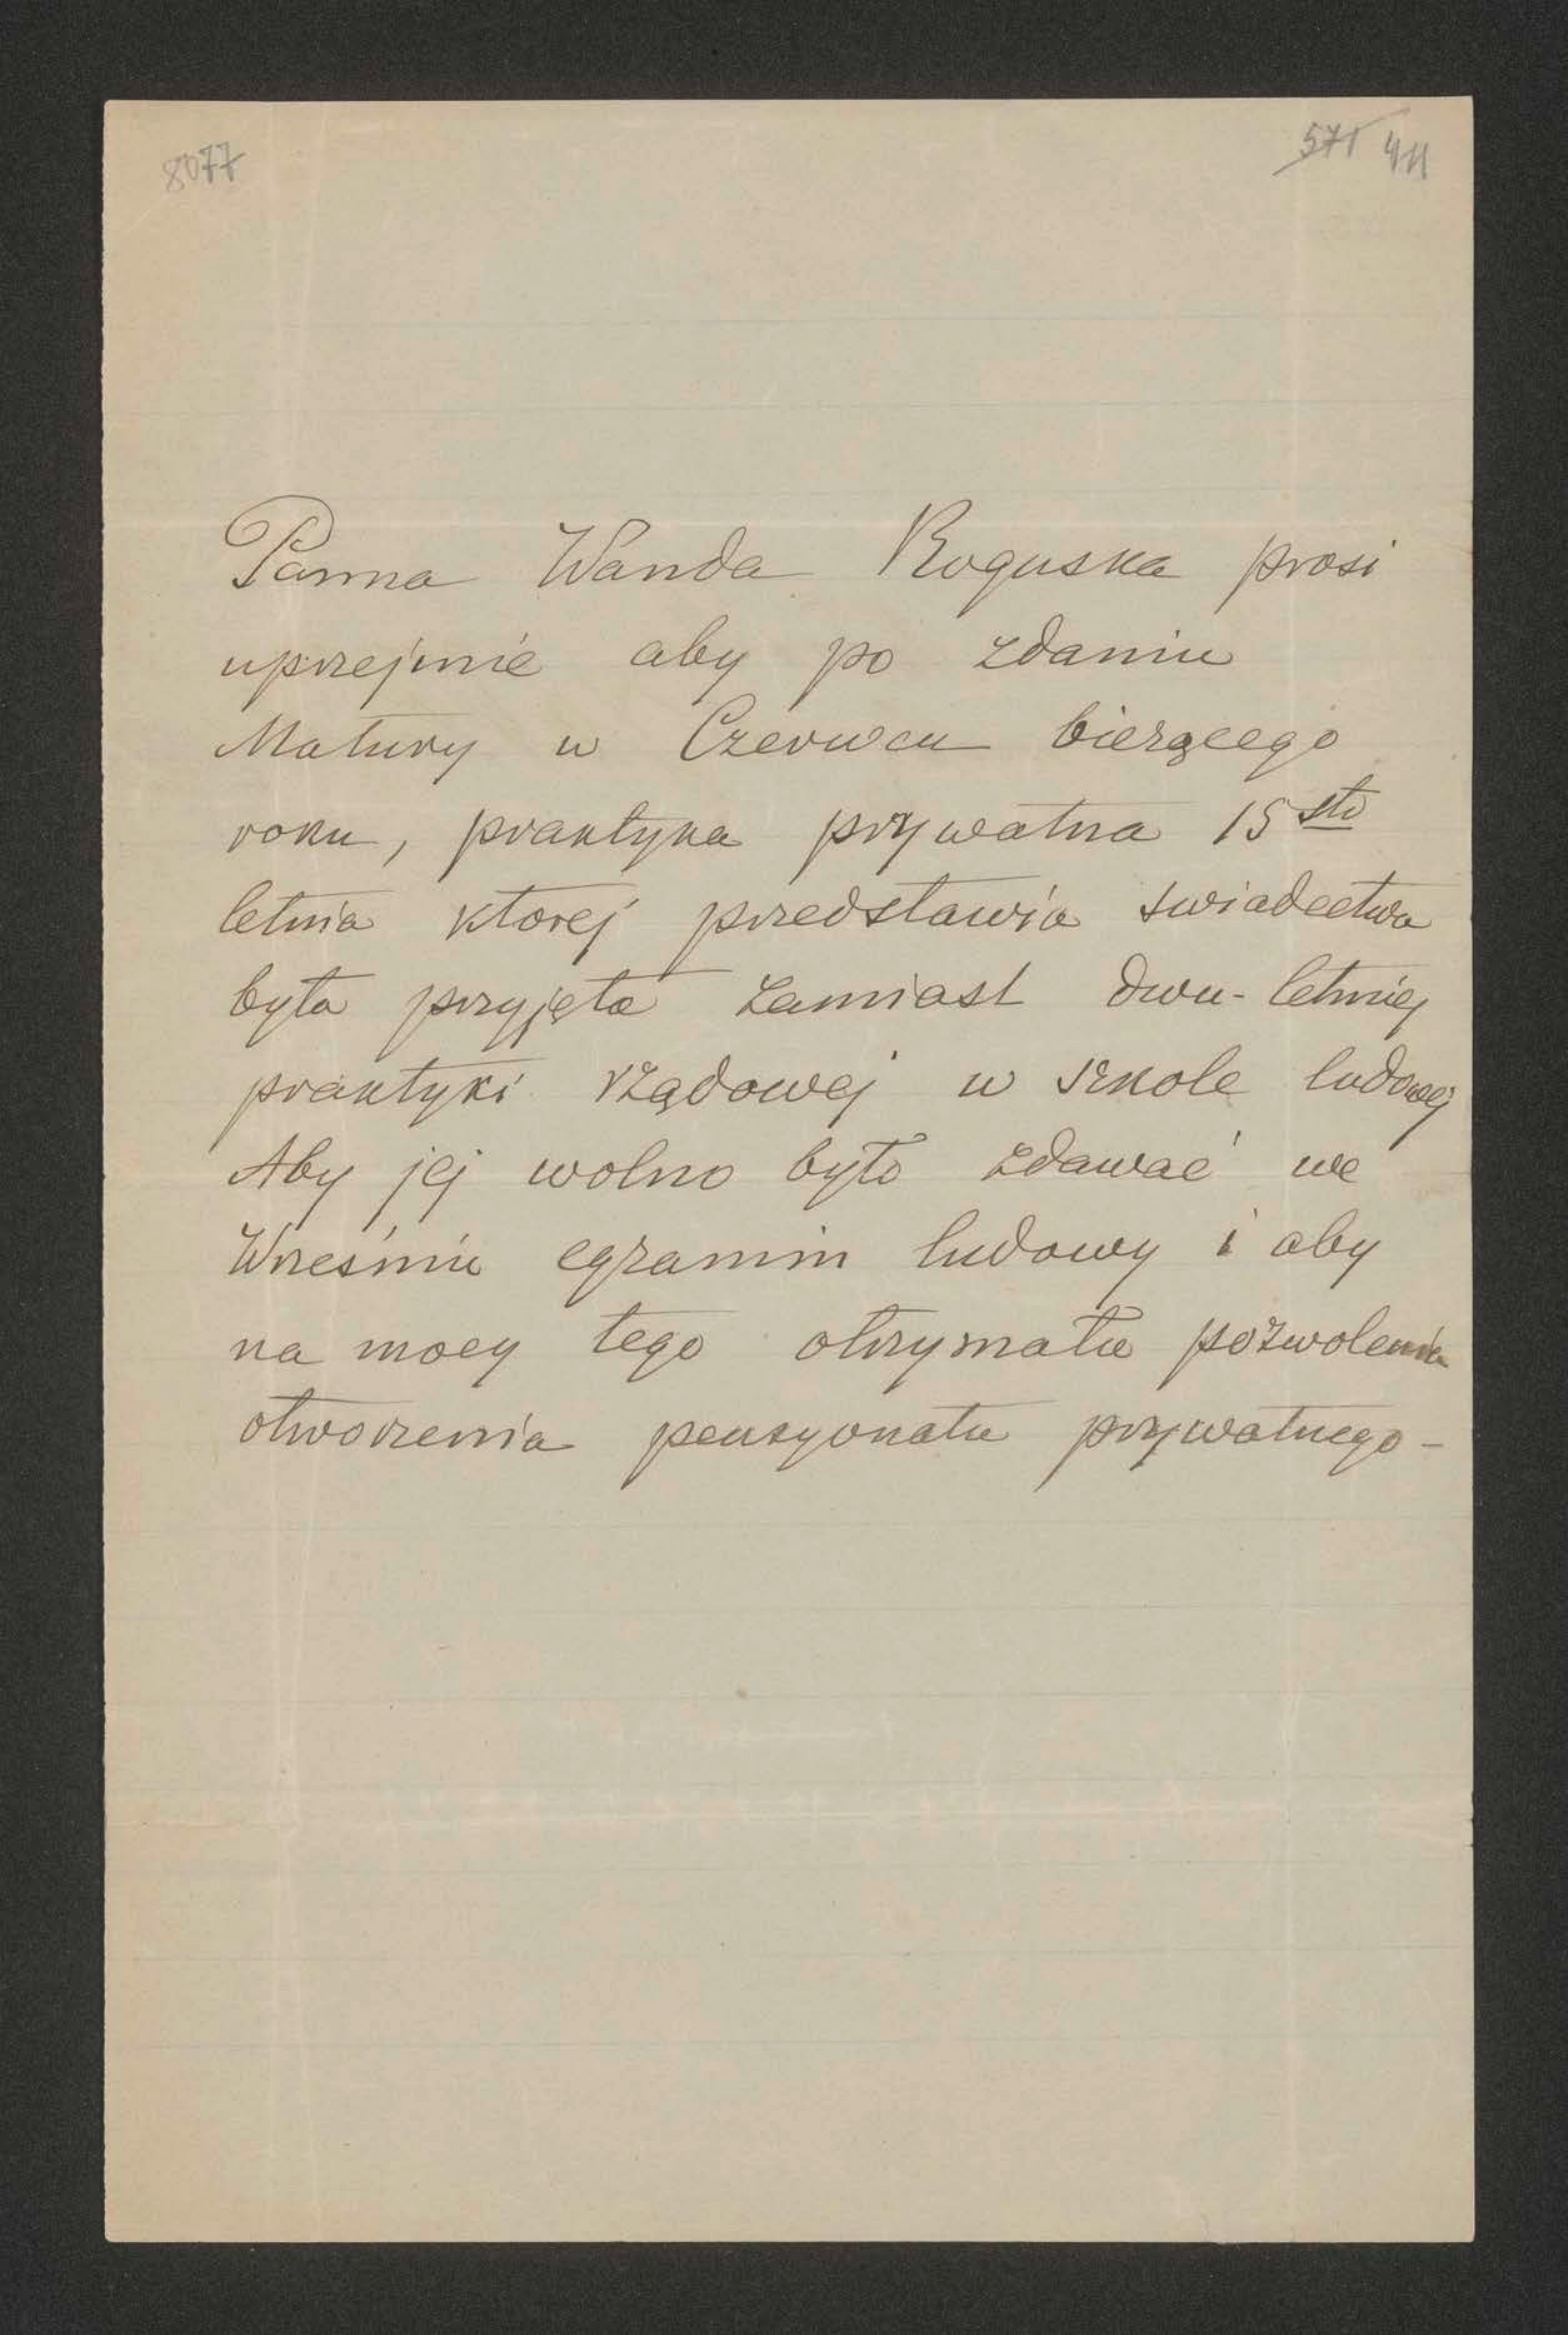 8077
571 411
Panna Wanda Roguska prosi
uprzejmie aby po zdaniu
Matury w Czerwcu bierzącego
roku, praktyka prywatna 15sto
letnia ktorej przedstawia swiadectwa
była przyjęta zamiast dwu-letniej
praktyki rządowej w szkole ludowej
Aby jej wolno było zdawać we
Wrześniu egzamin ludowy i aby
na mocy tego otrzymała pozwolenia
otworzenia pensyonatu prywatnego-